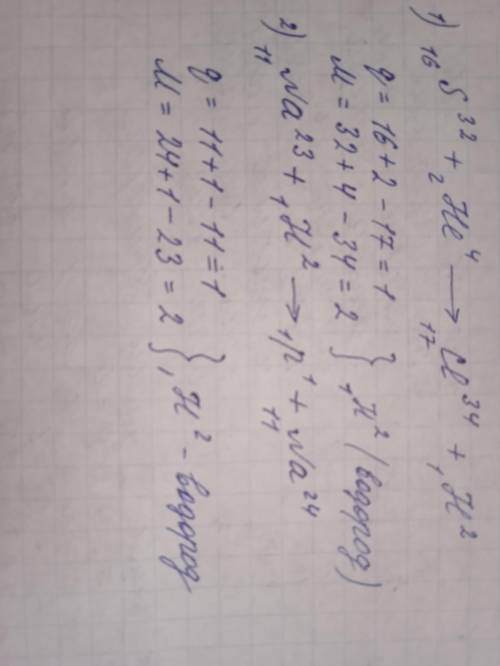 1) ₁₆S³² + ₂He⁴ → ₁₇Cl³⁴ + ₁H²
q = 16+2-17=1
M = 32+4-34=2 } ₁H² (водород)
2) ₁₁Na²³ + ₁H² → ₁p¹ + ₁₁Na²⁴
q = 11+1-11=1
M = 24+1-23=2 } ₁H² - водород